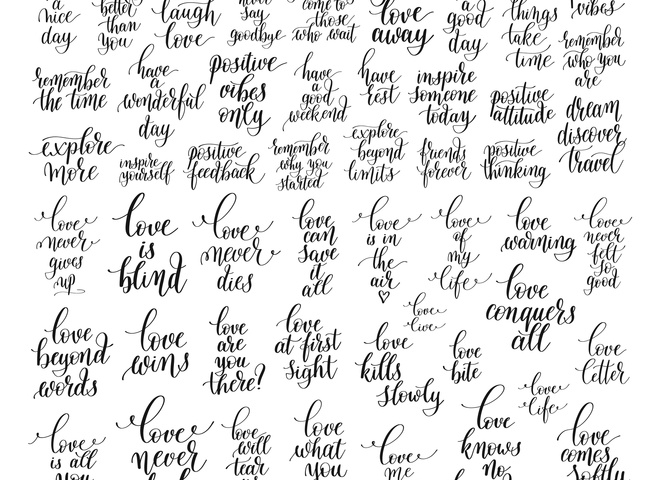 a
nice
day
better
than
you
laugh
love
never
say
goodbye
come to
those
who wait
love
away
a
good
day
things
take
time
vibes
remember
who you
are
remember
the time
have
a
wonderful
day
positive
vibes
only
have
a
good
weekend
have
rest
inspire
someone
today
positive
attitude
dream
discover
travel
explore
more
inspire
yourself
positive
feedback
remember
why you
started
explore
beyond
limits
friends
forever
positive
thinking
love
never
gives
up
love
is
blind
love
never
dies
love
can
save
it
all
love
is in
the
air
love
of
my
life
love
warning
love
never
felt
so
good
love
beyond
words
love
wins
love
are
you
there?
love
at first
sight
love
live
love
kills
slowly
love
bite
love
conquers
all
love
letter
love
life
love
is all
you
love
never
love
will
tear
us
love
what
you
love
me
love
knows
no
love
comes
softly